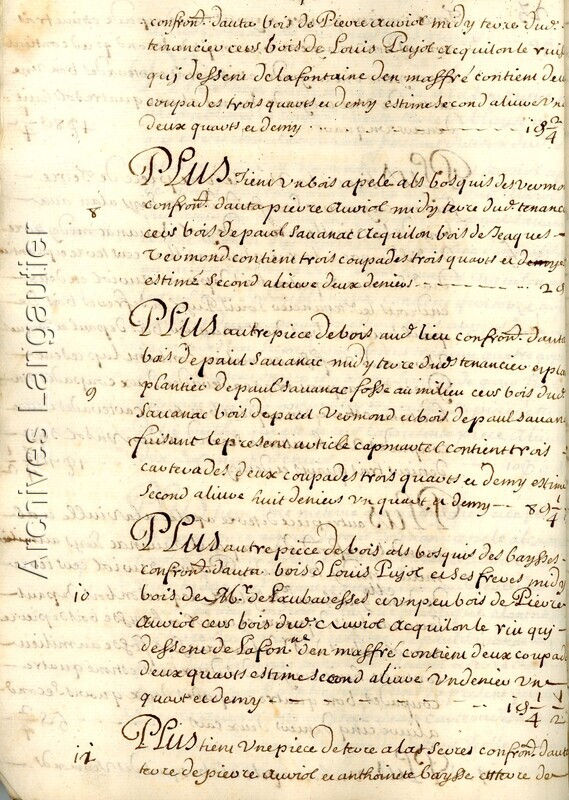 confron.t dauta bois de Pierre Auriol midy terre dud.
tenancier cers bois de Louis Pujol acquilon le rui
quj dessent de la fontaine den massré contient deu
coupades trois quarts et demy estime second aliure vn
deux quarts et demy 1 9 2/4
PLus tient vn bois apelé als bosquis des vermo
8
confron.t dauta pierre Auriol midy terre dud. tenanc
cers bois de paul Sauanac acquilon bois de Jeaques
vermond contient trois coupades trois quarts et demy
estimé second aliure deux deniers 2 9
PLus autre piece de bois aud. lieu confron.t dauta
bois de paul Sauanac midy terre dud. tenancier et pla
9
plantier de paul Sauanac fosse au milieu cers bois dud.
Sauanac bois de paul vermond et bois de paul Sauan
faisant le present article capmartel contient trois
carterades deux coupades trois quarts et demy estime
second aliure huit deniers vn quart et demy 8 9 1/4
PLus autre piece de bois als bosquis des baysses
confron.t dauta bois d Louis Pujol et ses freres midy
10
bois de M.r de Laubaresses et vn peu bois de Pierre
Auriol cers bois dud. Auriol acquilon le riu quj
dessent de la fon.ne den massré contient deux coupad
deux quarts estime second aliure vn denier vn
quart et demy 1 9 1/4 1/2
PLus tient vne piece de terre a las serres confron.t dauta
11
terre de pierre Auriol et anthoinete baysse et terre de
Archives Langautier